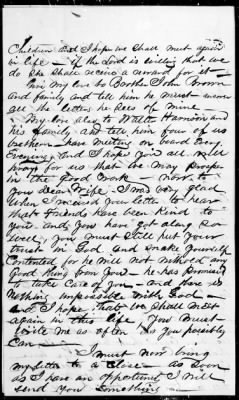 Children But I hope we shall meet again
in life – if the Lord is willing that we
do she shall receive a reward for it –
Give my love to Brother John Brown
and family and tell him he must answer
all the letters he Sees of mine –
My love also to Walter Harrison and
his family and tell him four of us
brethren have meeting on board Every
Evening and I hope you all will
pray for us that we may prosper
in the Good Work – now to
you Dear Wife. I was very glad
when I received your letter to hear
that Friends have been kind to
you and you have got along so
well; you must Still put your
trust in God and make yourself
Contented for he will not withhold any
Good thing from you – he has promised
to take Care of you – and there is
nothing impossible with God
and I hope that we shall meet
again in this life You must
write me as often as you possibly
Can –
I must now bring
my letter to a Close – as soon
as I have an opportunity I will
send you Something –